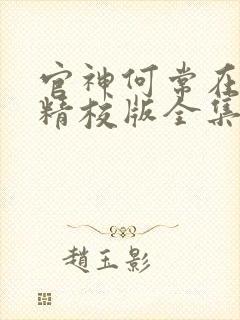 官神何常在
精校版全集
趙玉影